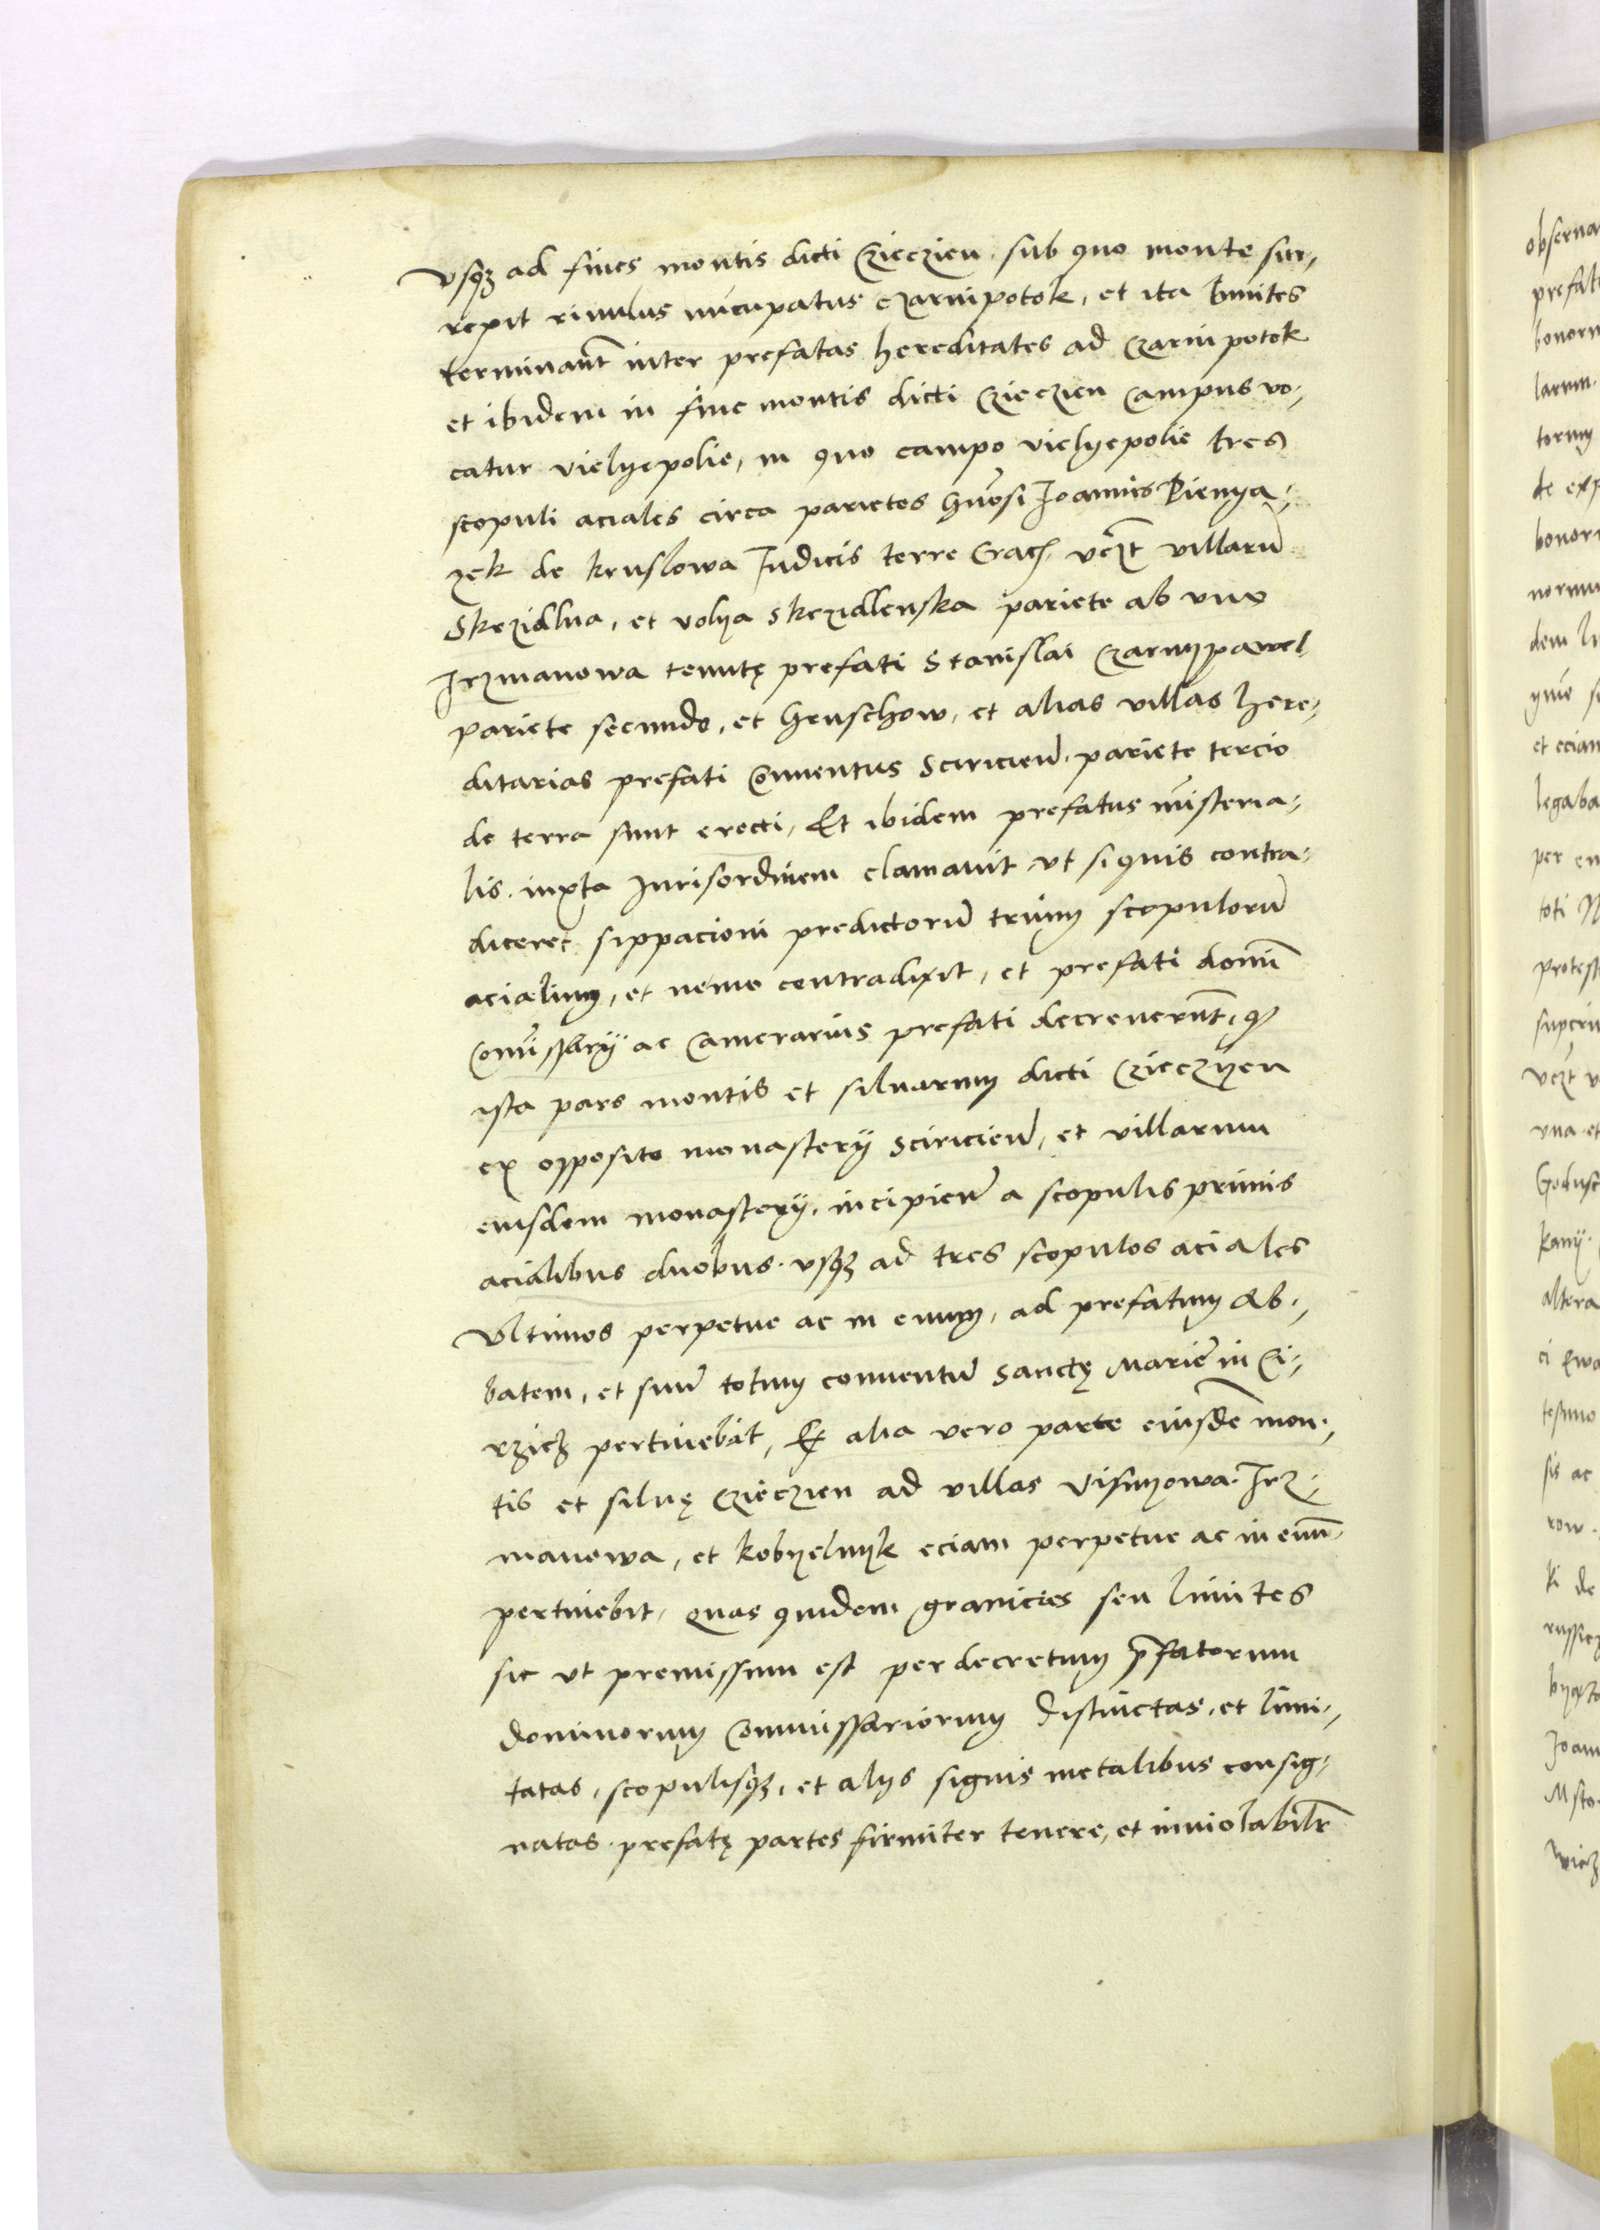 vsqz ad fines montis dicti Czieczien, sub quo monte sur,
repit riuulus nūcupatus czarnipotok, et ita limites
terminant̄ inter prefatas hereditates ad Czarnipotok
et ibidem in fine montis dicti Czieczien campus vo,
catur vielyepolie, in quo campo vielyepolie tres
scopuli aciales circa parietes Gn̄osi Joannis Pienya,
zek de kruslowa Iudicis terre Crac̄. vcz̄t villarū
Skrzidlna, et volya skrzidlenska pariete ab vno
Jrzmanowa tenutę prefati Stanislai Czarnypawel
pariete secundo, et Gruschow, et alias villas here,
ditarias prefati Conuentus Sciricien̄. pariete tercio
de terra sunt erecti, Et ibidem prefatus mīsteria,
lis. iuxta Jurisordinem clamauit vt si quis contra,
diceret sippacioni predictorū trium scopulorū
acialium, et nemo contradixit, et prefati domī
Com̄issarij ac Camerarius prefati decreuerūt, q
ista pars montis et siluarum dicti Czieczyen
ex opposito monasterij Sciricien̄, et villarum
eiusdem monasterij. incipien̄ a scopulis primis
acialibus duobus. vsqz ad tres scopulos aciales
vltimos perpetue ac in euum, ad prefatum Ab,
batem, et suū totum conuentū Sanctę Mariē in Ci,
rzicz pertinebit, Ex alia vero parte eiusdē mon,
tis et siluę Czieczien ad villas Visnyowa. Jrz,
manowa, et kobyelnyk eciam perpetue ac in euū.
pertinebit, quas quidem granicies seu limites
sic vt premissum est per decretum p̄fatorum
dominorum Commissariorum distinctas, et limi,
tatas, scopulisqz, et alijs signis metalibus consig,
natas. prefatę partes firmiter tenere, et inuiolabilr̄